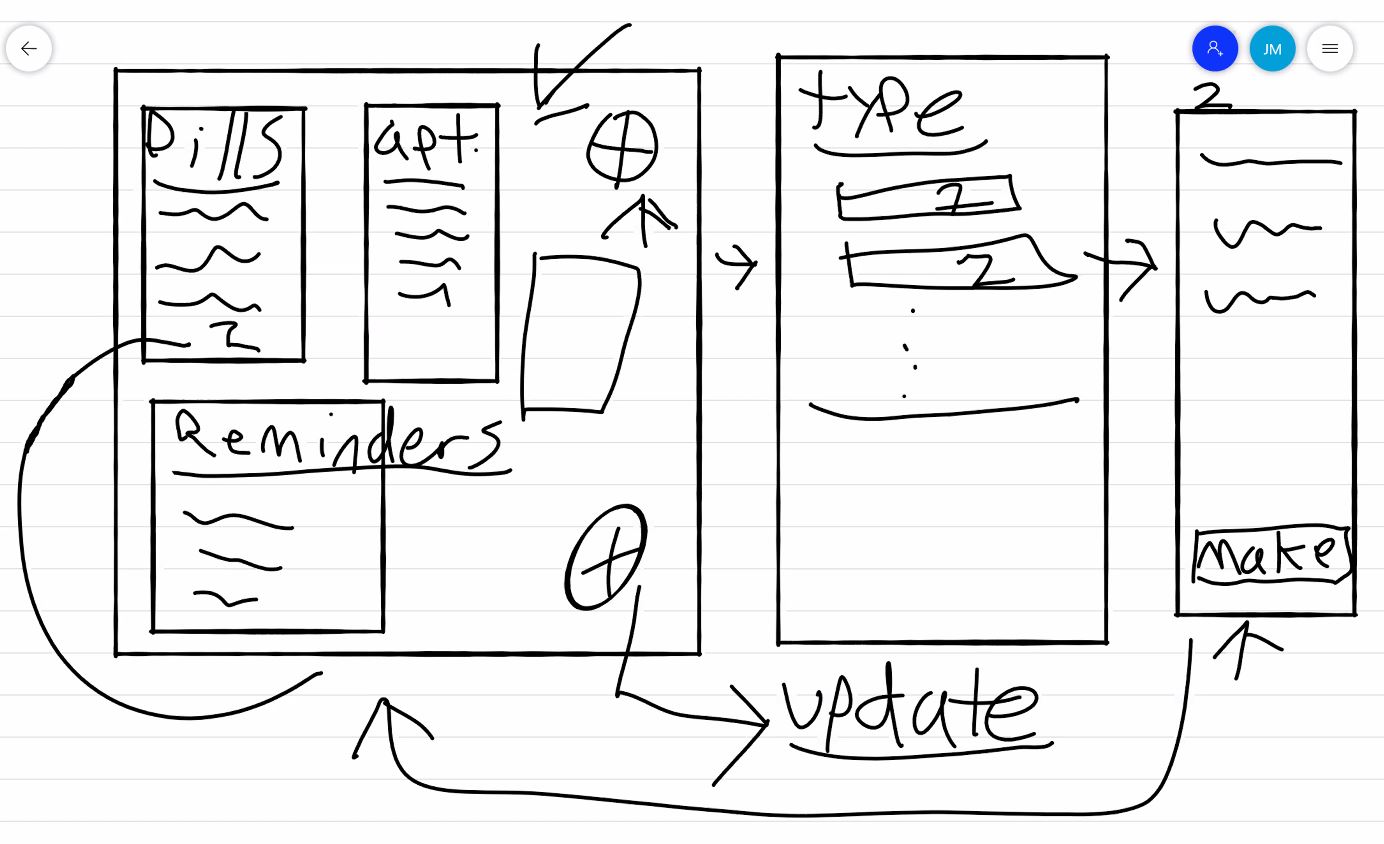 JM
Pills
apt.
Reminders
type
2
2
make
update